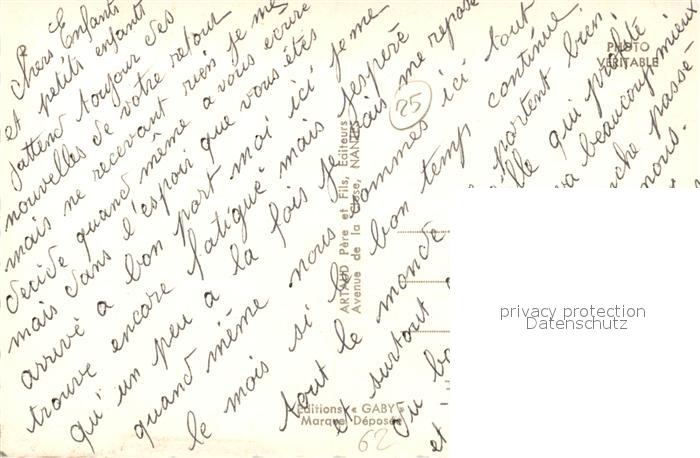 Chers Enfants
et petits enfants
j'attend toujour des
nouvelles de votre retour
mais ne recevant rien je me
décide quand même a vous ecrire
mais dans l'espoir que vous êtes
arrivé a bon port moi ici je me
trouve encore fatigué mais j'espère
qu'un peu a la fois je vais me reposé
quand même nous sommes ici tout
le mois si le bon temp continue
tout le monde portent bien
et surtout lle qui profité
va beaucoup mieux
che passe
nous.
et
PHOTO
VÉRITABLE
25
ARTAUD Père et Fils, Editeurs
Avenue de la Close, NANTES
Editions « GABY »
Marque Déposée
62
privacy protection
Datenschutz